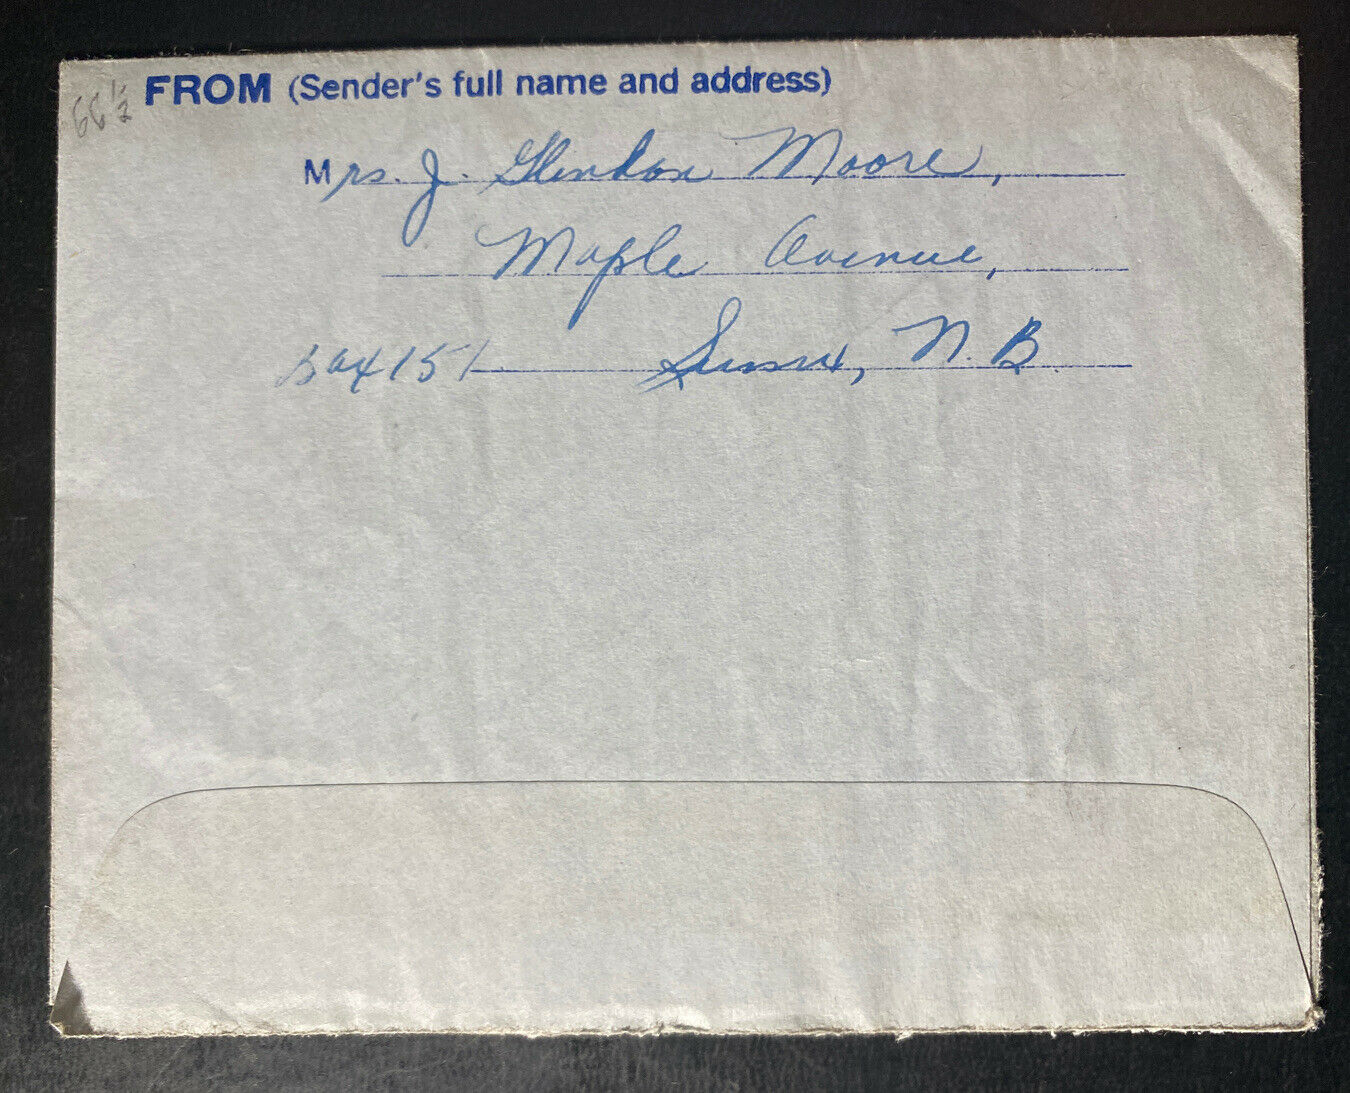 66 1/2
FROM (Sender's full name and address)
Mrs. J. Glendon Moore,
Maple Avenue,
Box 151 Sussex, N.B